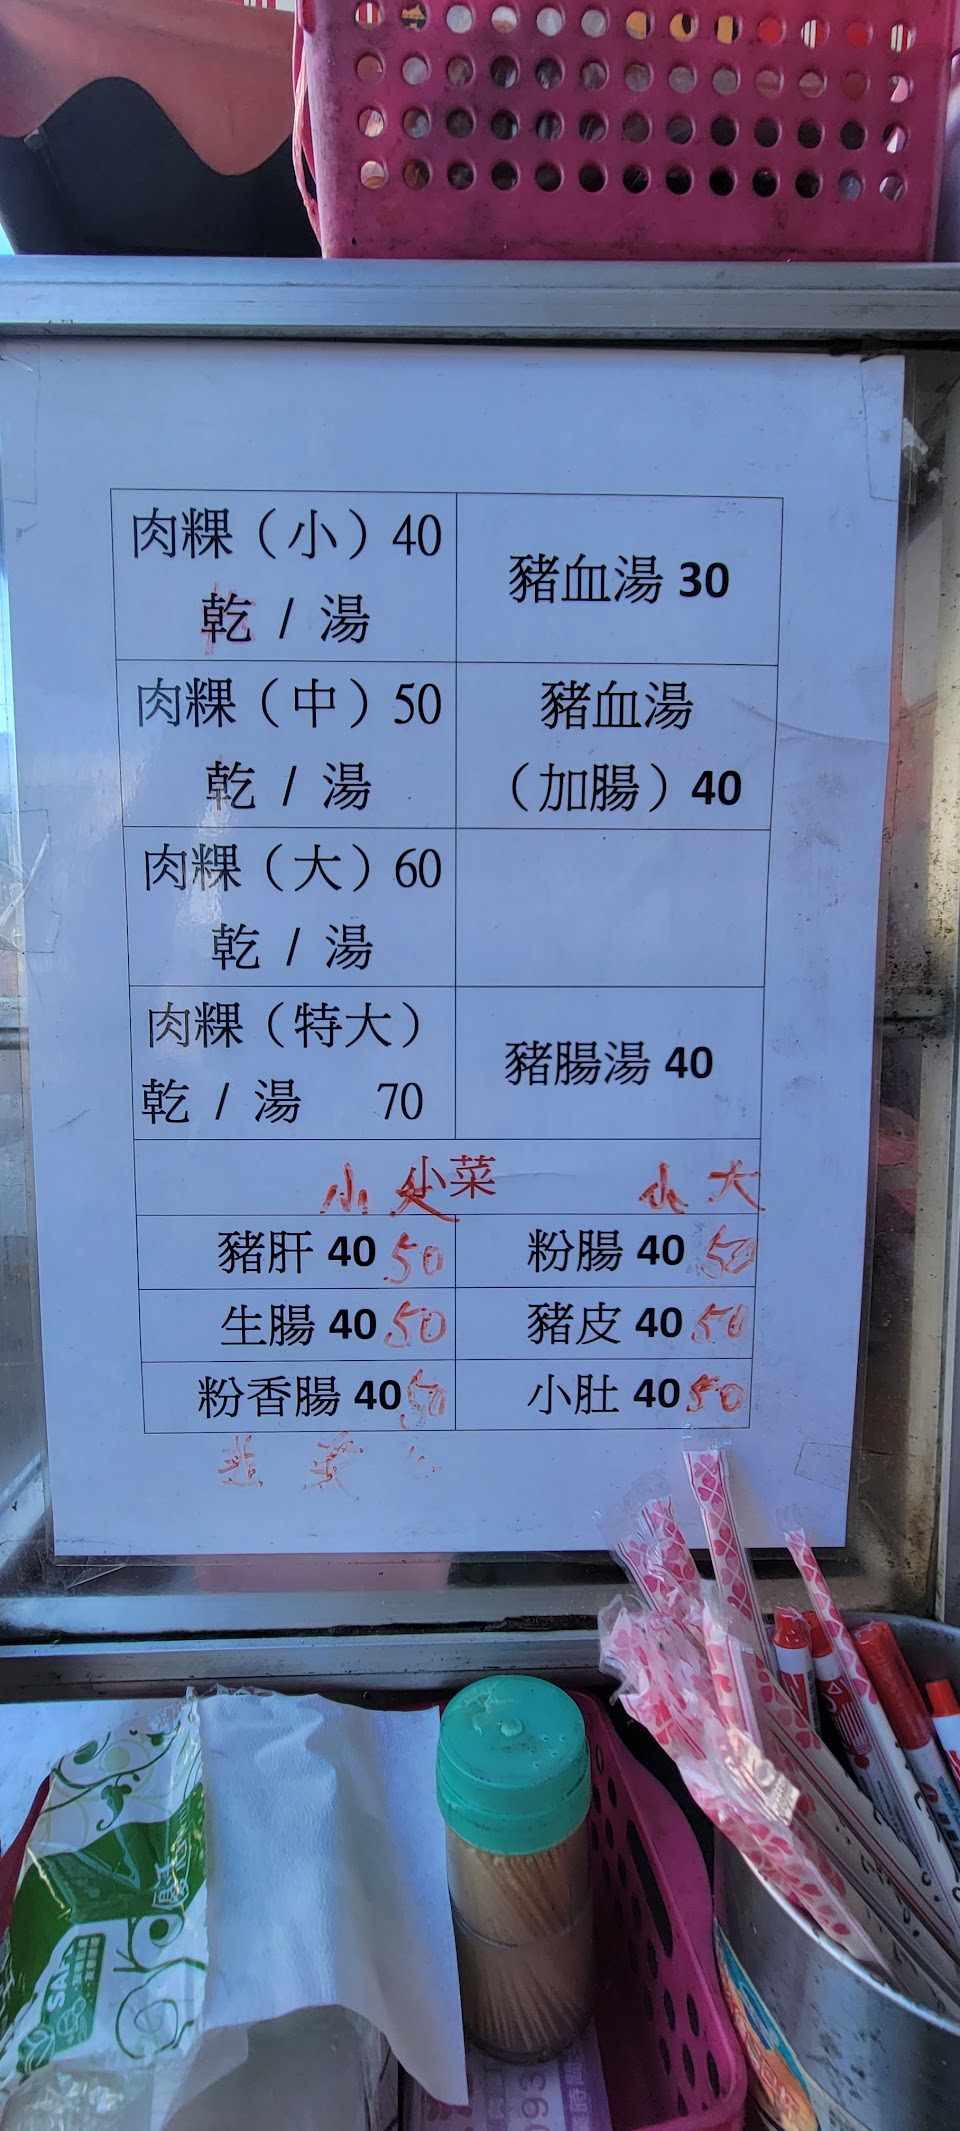 肉粿（小）40
乾 / 湯
豬血湯 30
肉粿（中）50
乾 / 湯
豬血湯
（加腸）40
肉粿（大）60
乾 / 湯
肉粿（特大）
乾 / 湯 70
豬腸湯 40
小菜
小 大 小 大
豬肝 40 50
粉腸 40 50
生腸 40 50
豬皮 40 50
粉香腸 40 50
小肚 40 50